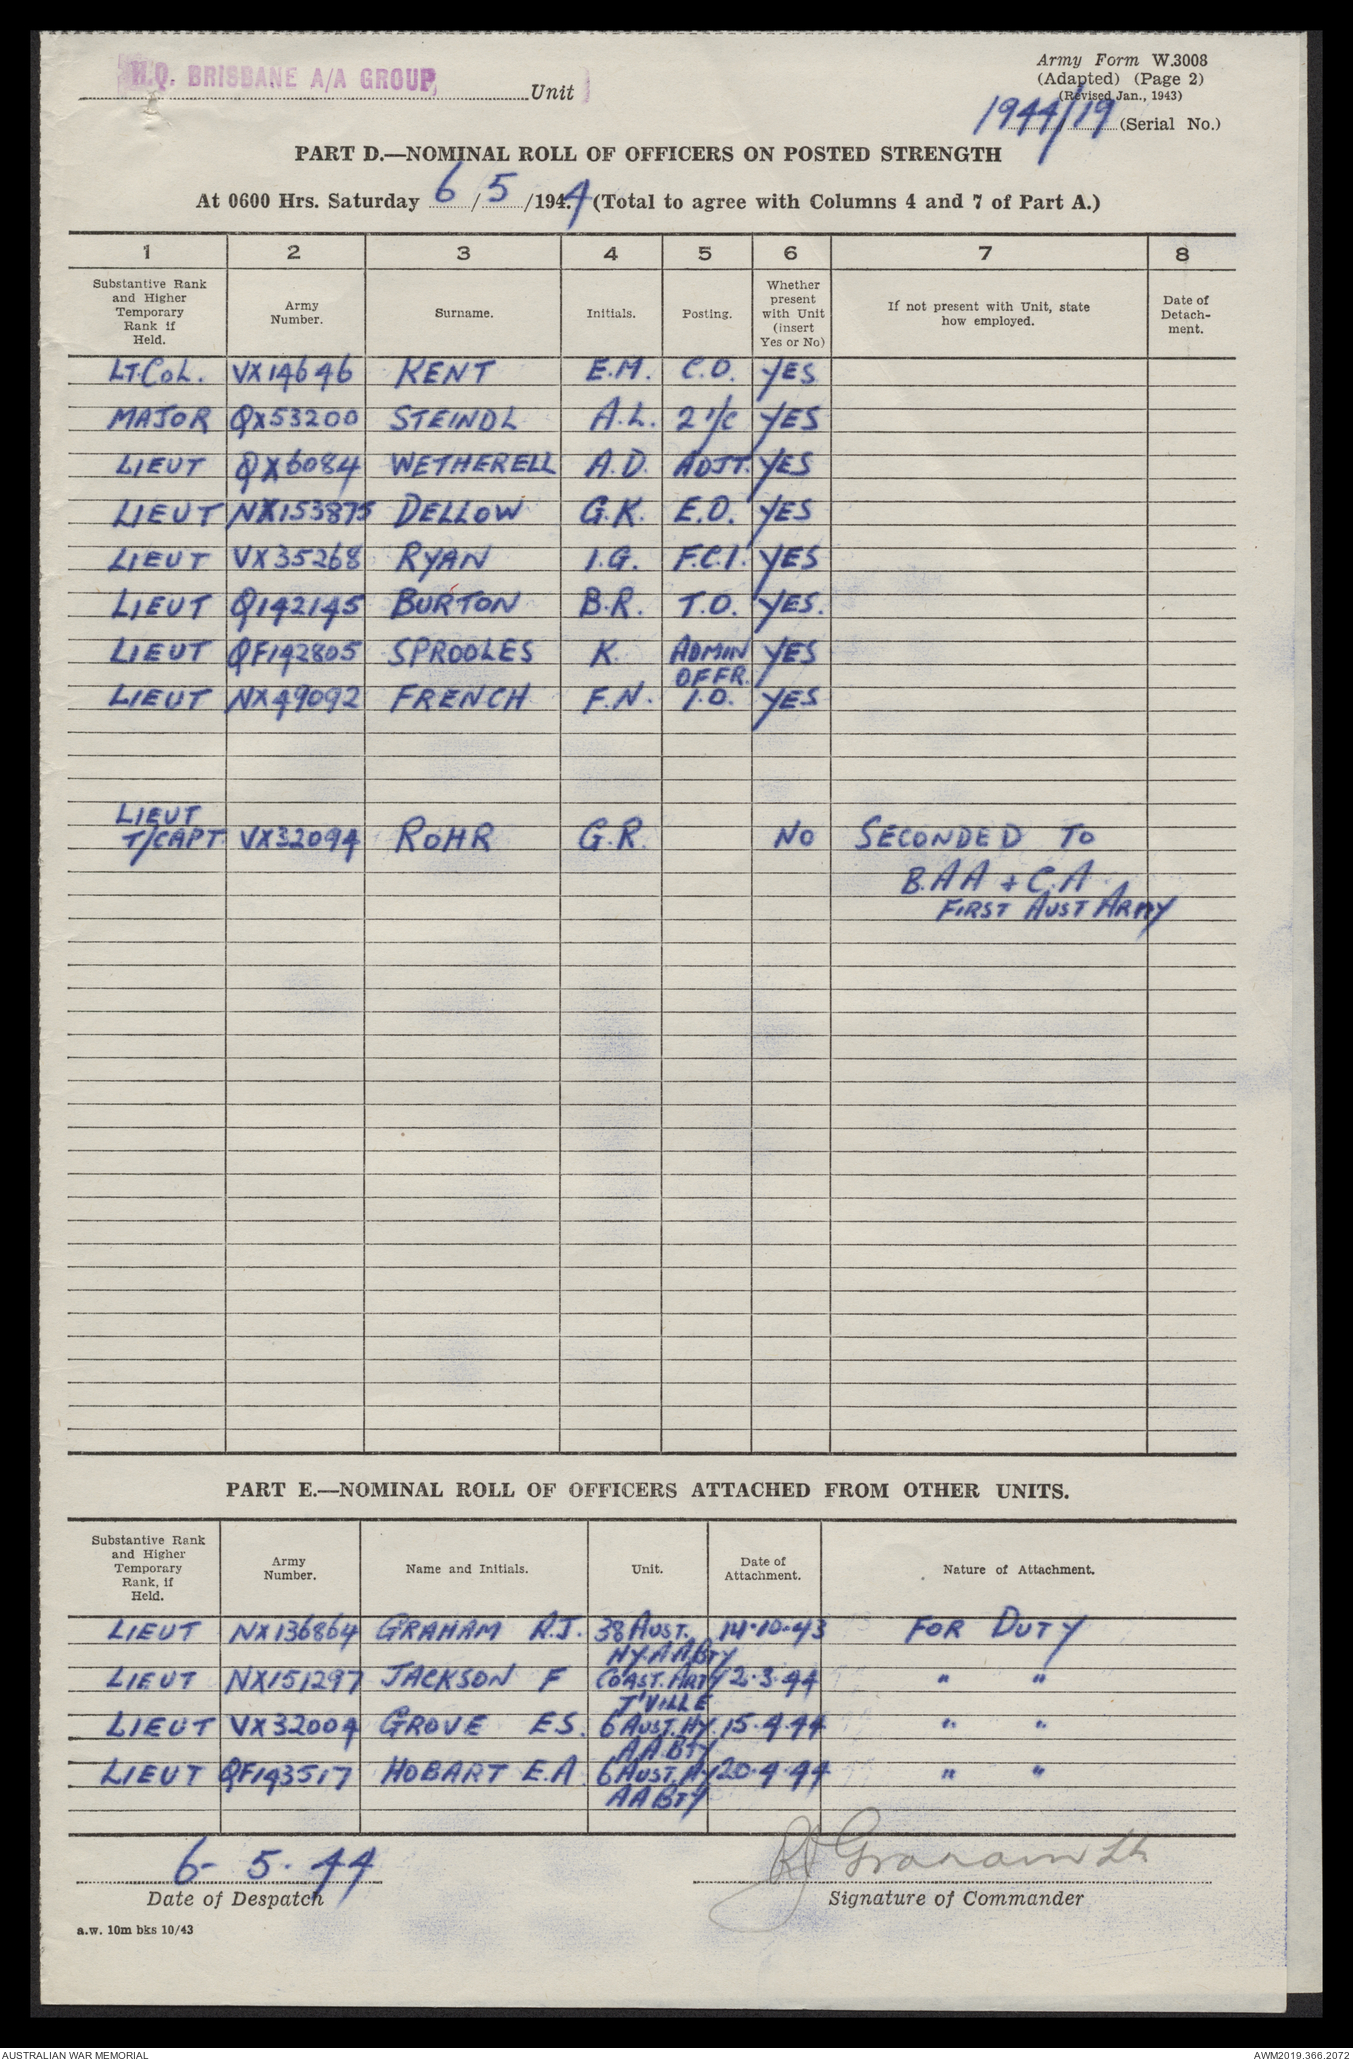 H.Q. BRISBANE A/A GROUP, Unit
Army Form W.3008
(Adapted) (Page 2)
(Revised Jan., 1943)
1944/19 (Serial No.)
PART D.—NOMINAL ROLL OF OFFICERS ON POSTED STRENGTH
At 0600 Hrs. Saturday 6/5/1944 (Total to agree with Columns 4 and 7 of Part A.)
1 2 3 4 5 6 7 8
Substantive Rank and Higher Temporary Rank if Held. Army Number. Surname. Initials. Posting. Whether present with Unit (insert Yes or No) If not present with Unit, state how employed. Date of Detach-ment.
LT.COL. VX14646 KENT E.M. C.O. YES
MAJOR QX53200 STEINDL A.L. 2 I/C YES
LIEUT QX6084 WETHERELL A.D. ADJT. YES
LIEUT NX153875 DELLOW G.K. E.O. YES
LIEUT VX35268 RYAN I.G. F.C.I. YES
LIEUT Q142145 BURTON B.R. T.O. YES.
LIEUT QF142805 SPROOLES K. ADMIN YES
OFFR.
LIEUT NX49092 FRENCH F.N. I.O. YES
LIEUT
T/CAPT VX32094 ROHR G.R. NO SECONDED TO
B.AA + C.A.
FIRST AUST ARMY
PART E.—NOMINAL ROLL OF OFFICERS ATTACHED FROM OTHER UNITS.
Substantive Rank and Higher Temporary Rank, if Held. Army Number. Name and Initials. Unit. Date of Attachment. Nature of Attachment.
LIEUT NX136864 GRAHAM R.J. 38 AUST. 14.10.43 FOR DUTY
HY.A.A.BTY
LIEUT NX151297 JACKSON F COAST.ARTY 2.3.44 " "
T'VILLE
LIEUT VX32004 GROVE E.S. 6 AUST.HY. 15.4.44 " "
A A.BTY
LIEUT QF143517 HOBART E.A 6 AUST.HY 20.4.44 " "
AA BTY
6- 5. 44 RJ Graham Lt
Date of Despatch Signature of Commander
a.w. 10m bks 10/43
AUSTRALIAN WAR MEMORIAL AWM2019.366.2072